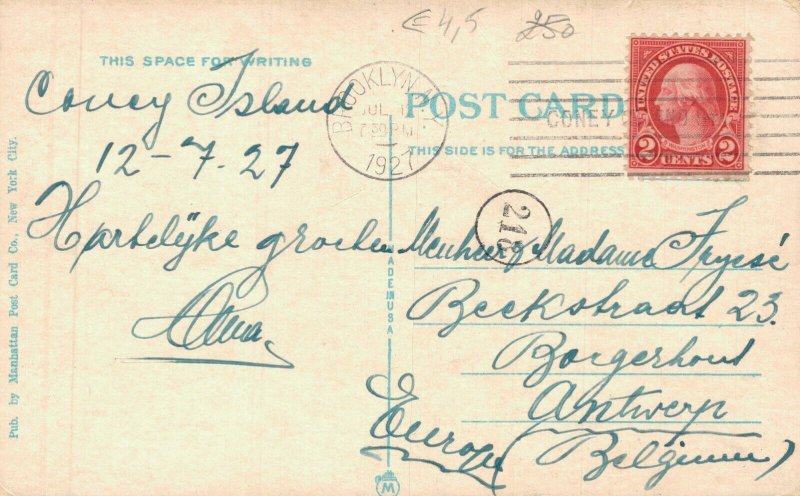 € 4,5 250
THIS SPACE FOR WRITING
Coney Island
12-7.27
Hartelijke groeten
BROOKLYN, N.Y.
JUL
30 PM
1927
POST CARD
CONEY
THIS SIDE IS FOR THE ADDRESS
UNITED STATES POSTAGE
WASHINGTON
2 CENTS 2
218
Menheer / Madame Frysé
Beekstraat 23.
Borgerhout
Antwerp
Europe (Belgium)
MADE IN USA
M
Pub. by Manhattan Post Card Co., New York City.